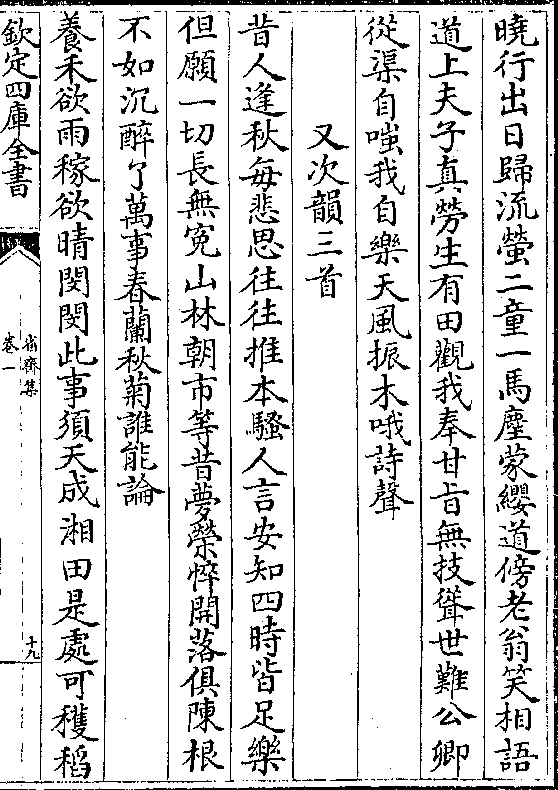 曉行出日歸流螢二童一馬塵蒙纓道傍老翁笑相語
道上夫子真勞生有田觀我奉甘旨無技聳世難公卿
從渠自嗤我自樂天風振木哦詩聲
又次韻三首
昔人逢秋每悲思往往推本騷人言安知四時皆足樂
但願一切長無寃山林朝市等昔夢榮悴開落俱陳根
不如沉醉了萬事春蘭秋菊誰能論
養禾欲雨稼欲晴閔閔此事須天成湘田是處可穫稻
欽定四庫全書
省齋集
卷一
十九